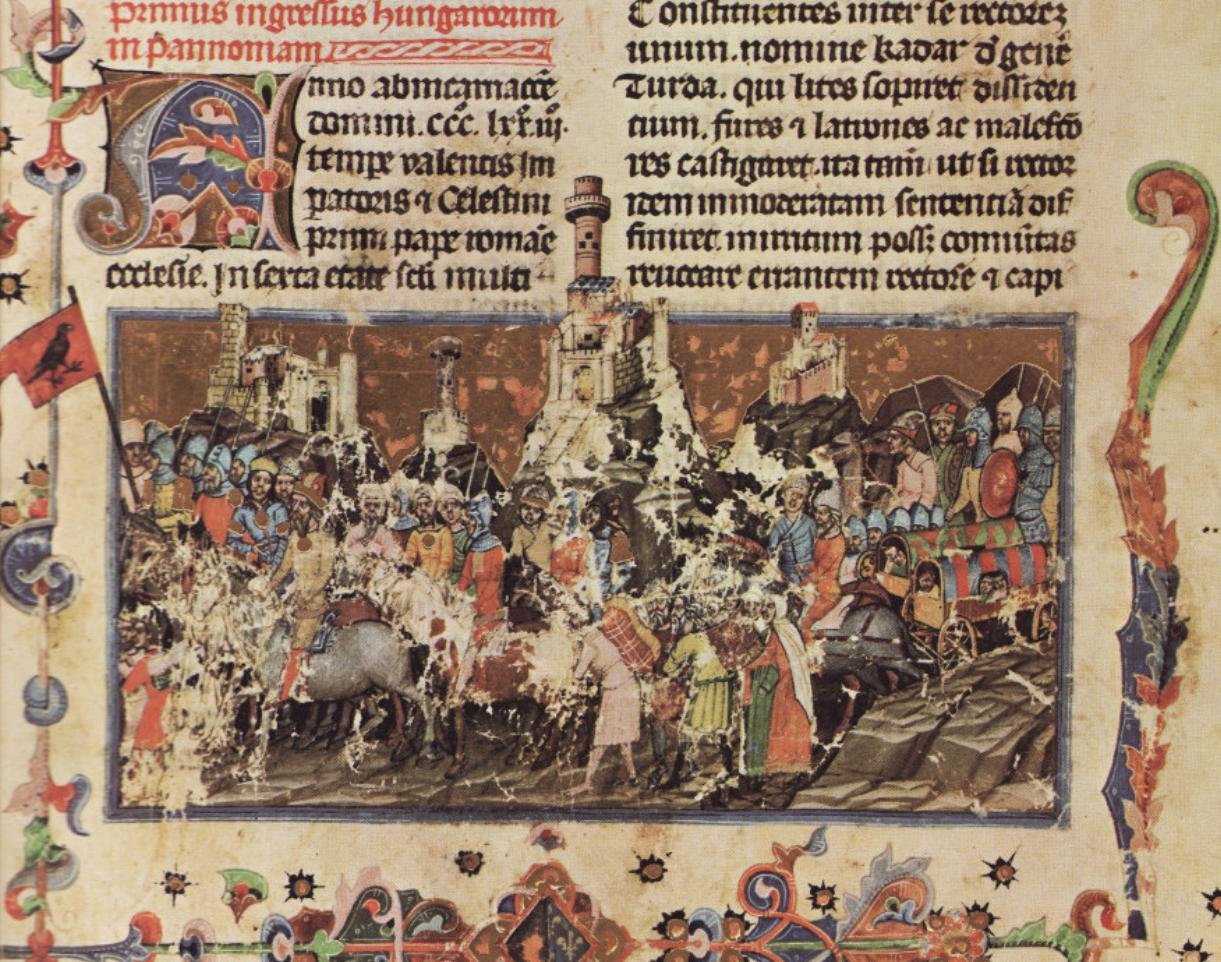 primus ingressus hungarorum
in pannoniam
Anno ab incarnacōe
domini. ccc. lxx.iii.
tempe valentis im
patoris ⁊ Celestini
primi pape romāe
ecclesie. In serta etate scli multi
Constituentes inter se rectorez
unum. nomine kadar d̓ genē
Turda. qui lites sopiret dissiden
tium. fures ⁊ latrones ac malefc̄o
res castigaret. ita tam̄ ut si rector
idem inmoderatam sentenciā dif
finiret. inirritum poss: comūitas
reuocare errantem rectorē ⁊ capi